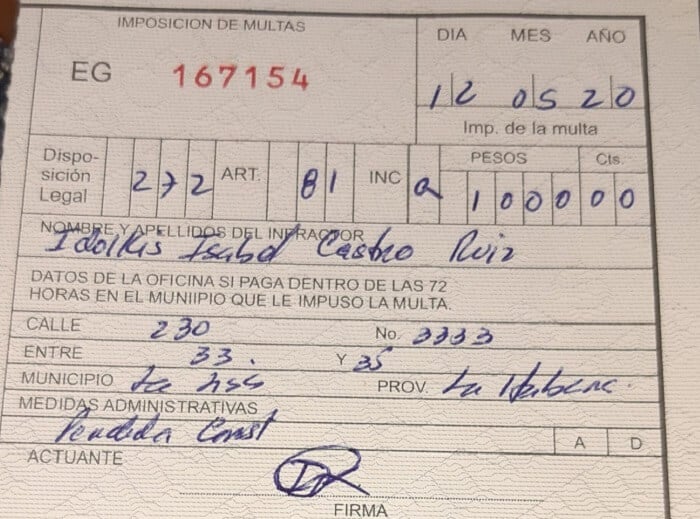 IMPOSICION DE MULTAS
DIA MES AÑO
EG 167154
12 05 20
Imp. de la multa
Dispo-
sición
Legal
272 ART. 81 INC a
PESOS Cts.
1000 00
NOMBRE Y APELLIDOS DEL INFRACTOR
Idolkis Isabel Castro Ruiz
DATOS DE LA OFICINA SI PAGA DENTRO DE LAS 72
HORAS EN EL MUNIIPIO QUE LE IMPUSO LA MULTA.
CALLE 230 No. 3333
ENTRE 33. Y 35
MUNICIPIO La PROV. La Habana.
MEDIDAS ADMINISTRATIVAS
Const
A D
ACTUANTE
FIRMA